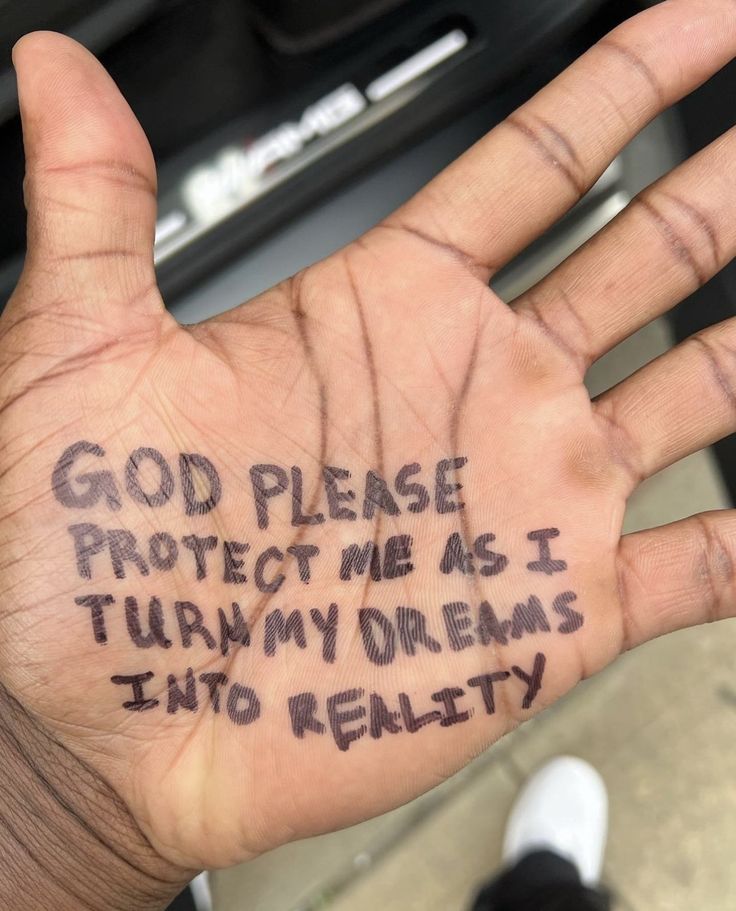 AMG
GOD PLEASE
PROTECT ME AS I
TURN MY DREAMS
INTO REALITY